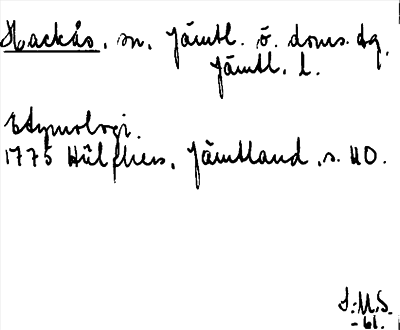 Hackås, sn. Jämtl. ö. doms. dq.
Jämtl. l.
Etymologi.
1775 Hülphers, Jämtland, s. 110.
S:M.S.
-61.